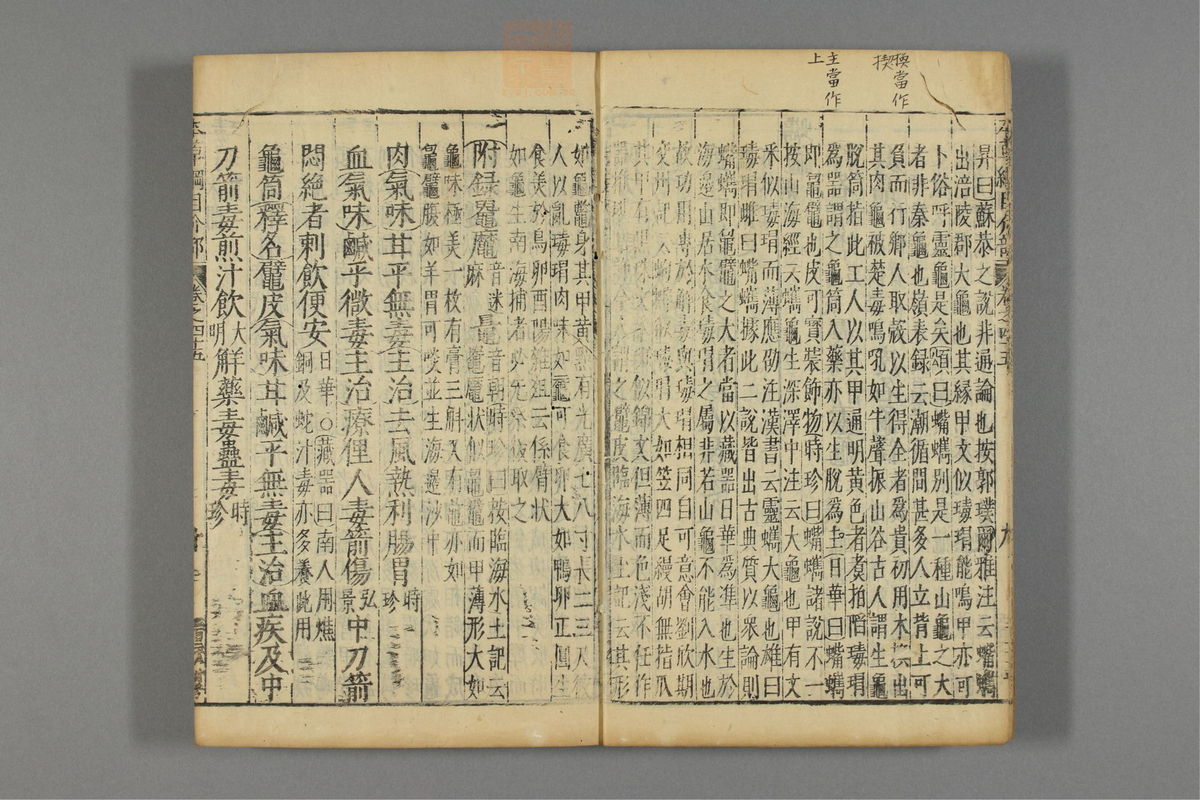 換當作
揳
主當作
上
昇曰蘇恭之說非通論也按郭璞爾雅注云蟕蠵
出涪陵郡大龜也其緣甲文似瑇瑁能鳴甲亦可
卜俗呼靈龜是矣頌曰蟕蠵別是一種山龜之大
者非秦龜也嶺表録云潮循間甚多人立背上可
負而行鄉人取殼以生得全者爲貴初用木換出
其肉龜被楚毒鳴吼如牛聲振山谷古人謂生龜
脫筒指此工人以其甲通明黃色者煮拍陷瑇瑁
爲器謂之龜筒入藥亦以生脫爲主日華曰蟕蠵
即鼊也皮可寶裝飾物時珍曰蟕蠵諸說不一
按山海經云蠵龜生深澤中注云大龜也甲有文
采似瑇瑁而薄應劭注漢書云靈蠵大龜也雄曰
瑇瑁雌曰蟕蠵據此二說皆出古典質以衆論則
蟕蠵即鼊之大者當以藏器日華爲準也生於
海邊山居水食瑇瑁之屬非若山龜不能入水也
故功用專於解毒與瑇瑁相同自可意會劉欣期
交州記云蚼似瑇瑁大如笠四足縵胡無指爪
其甲有黑珠文采但薄而色淺不任作
器謂之鼊皮臨海水土記云其形
如龜鼈身其甲黃點有光廣七八寸長二三尺彼
人以亂瑇瑁肉味如黿可食卵大如鴨卵正圓生
食美於鳥卵酉陽雜俎云係臂狀
如龜生南海捕者必先祭後取之
附録鼊音迷麻鼂音朝時珍曰按臨海水土記云
鼊狀似鼊而甲薄形大如
龜味極美一枚有膏三斛又有鼂亦如
鼊腹如羊胃可啖並生海邊沙中
肉氣味甘平無毒主治去風熱利腸胃時珍
血氣味鹹平微毒主治療俚人毒箭傷弘景中刀箭
悶絕者刺飲便安日華○藏器曰南人用燋
銅及蛇汁毒亦多養此用
龜筒釋名鼊皮氣味甘鹹平無毒主治血疾及中
刀箭毒煎汁飲大明解藥毒蠱毒時珍